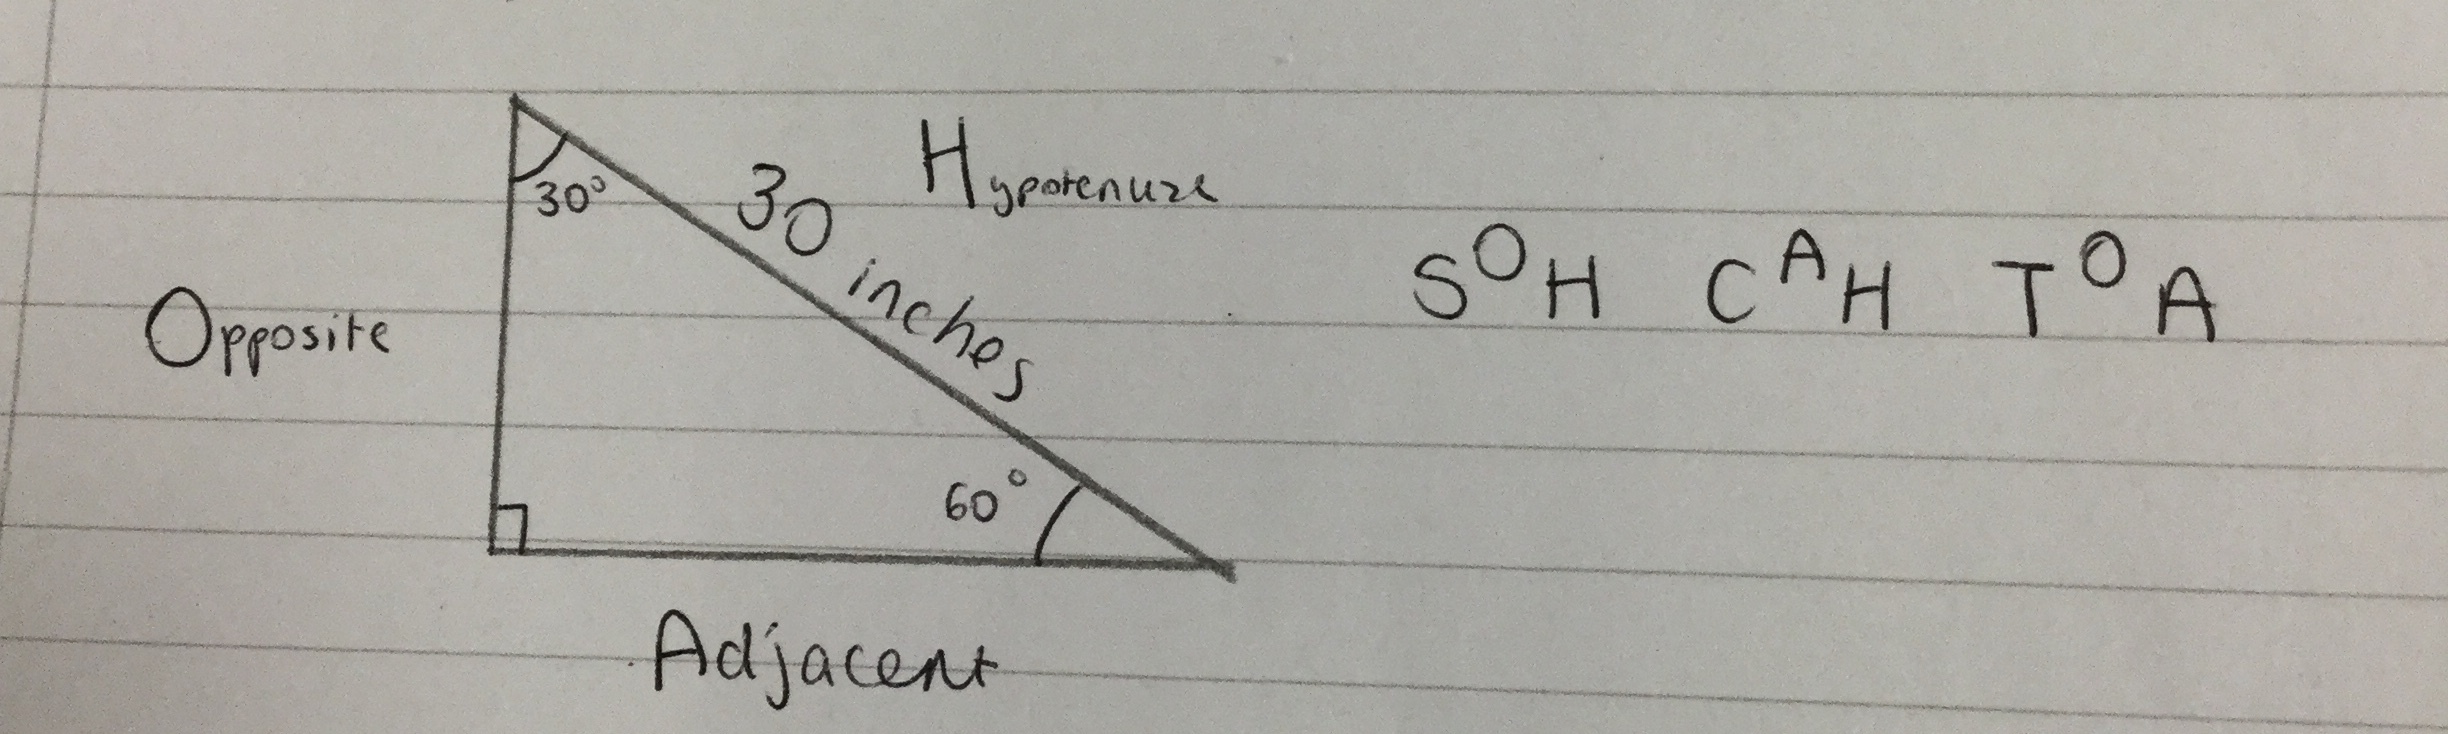 30°
30 inches
Hypotenuze
SOH CAH TOA
Opposite
60°
Adjacent